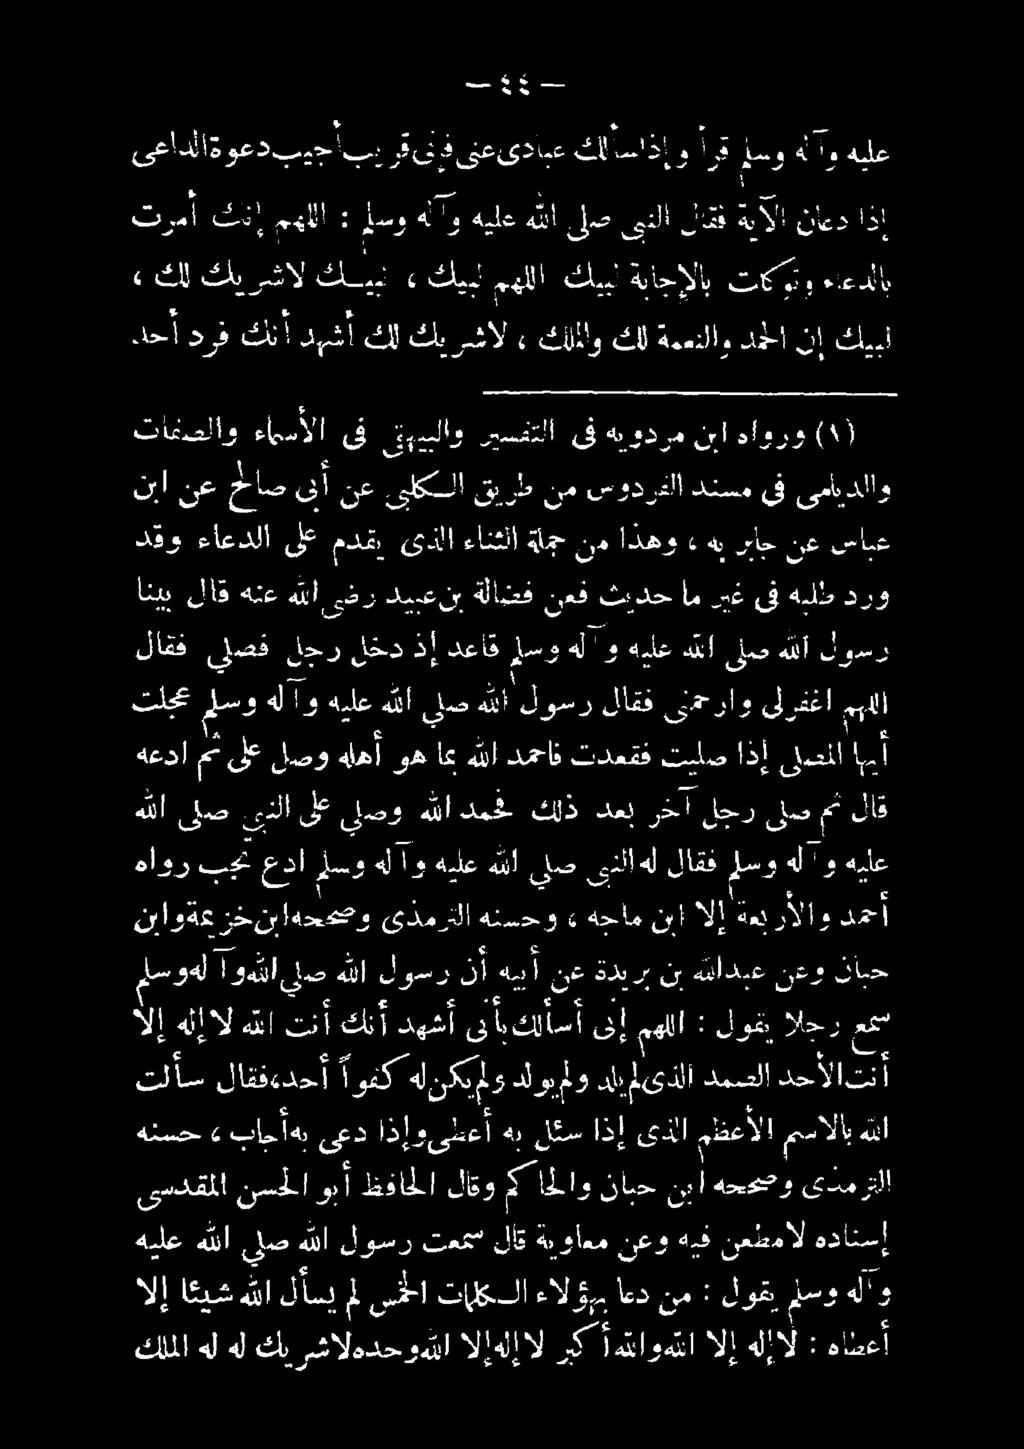 — ٤٤ —
عليه وآله وسلم قرأ وإذاسألك عبادىعنى فإنى قريب أجيب دعوة الداعى
إذا دعان الآية فقال النبى صلى الله عليه وآله وسلم : اللهم إنك أمرت
بالدعاء وتوكات بالإجابة لبيك اللهم لبيك ، لبيـك لاشريك لك ،
لبيك إن الحمد والنعمة لك والملك ، لاشريك لك أشهد أنك فرد أحد.
(١) ورواه ابن مردويه فى التفسير والبيهقى فى الأسماء والصفات
والديامى فى مسند الفردوس من طريق الـكلبى عن أبى صالح عن ابن
عباس عن جابر به ، وهذا من جملة الثناء الذى يقدم على الدعاء وقد
ورد طلبه فى غير ما حديث فعن فضالة بن عبيد رضى الله عنه قال بينا
رسول الله صلى الله عليه وآله وسلم قاعد إذ دخل رجل فصلي فقال
اللهم اغفرلى وارحمنى فقال رسول الله صلي الله عليه وآله وسلم عجلت
أيها المصلى إذا صليت فقعدت فاحمد الله بما هو أهله وصل على ثم ادعه
قال ثم صلى رجل آخر بعد ذلك فحمد الله وصلي على النبى صلى الله
عليه وآله وسلم فقال له النبى صلي الله عليه وآله وسلم ادع تجب رواه
أحمد والأربعة إلا ابن ماجه ، وحسنه الترمذى وصححه ابن خزيمة وابن
حبان وعن عبدالله بن بريدة عن أبيه أن رسول الله صلي الله وآله وسلم
سمع رجلا يقول : اللهم إنى أسألك بأنى أشهد أنك أنت الله لا إله إلا
أنت الأحد الصمد الذى لم يلد ولم يولد ولم يكن له كفوأ أحد، فقال سألت
الله بالاسم الأعظم الذى إذا سئل به أعطى وإذا دعى به أجاب ، حسنه
الترمذى وصححه ابن حبان والحاكم وقال الحافظ أبو الحسن المقدسى
إسناده لامطعن فيه وعن معاوية قال سمعت رسول الله صلي الله عليه
وآله وسلم يقول : من دعا بهؤلاء الـكلمات الخمس لم يسأل الله شيئا إلا
أعطاه : لا إله إلا الله والله أكبر لا إله إلا الله وحده لاشريك له له الملك